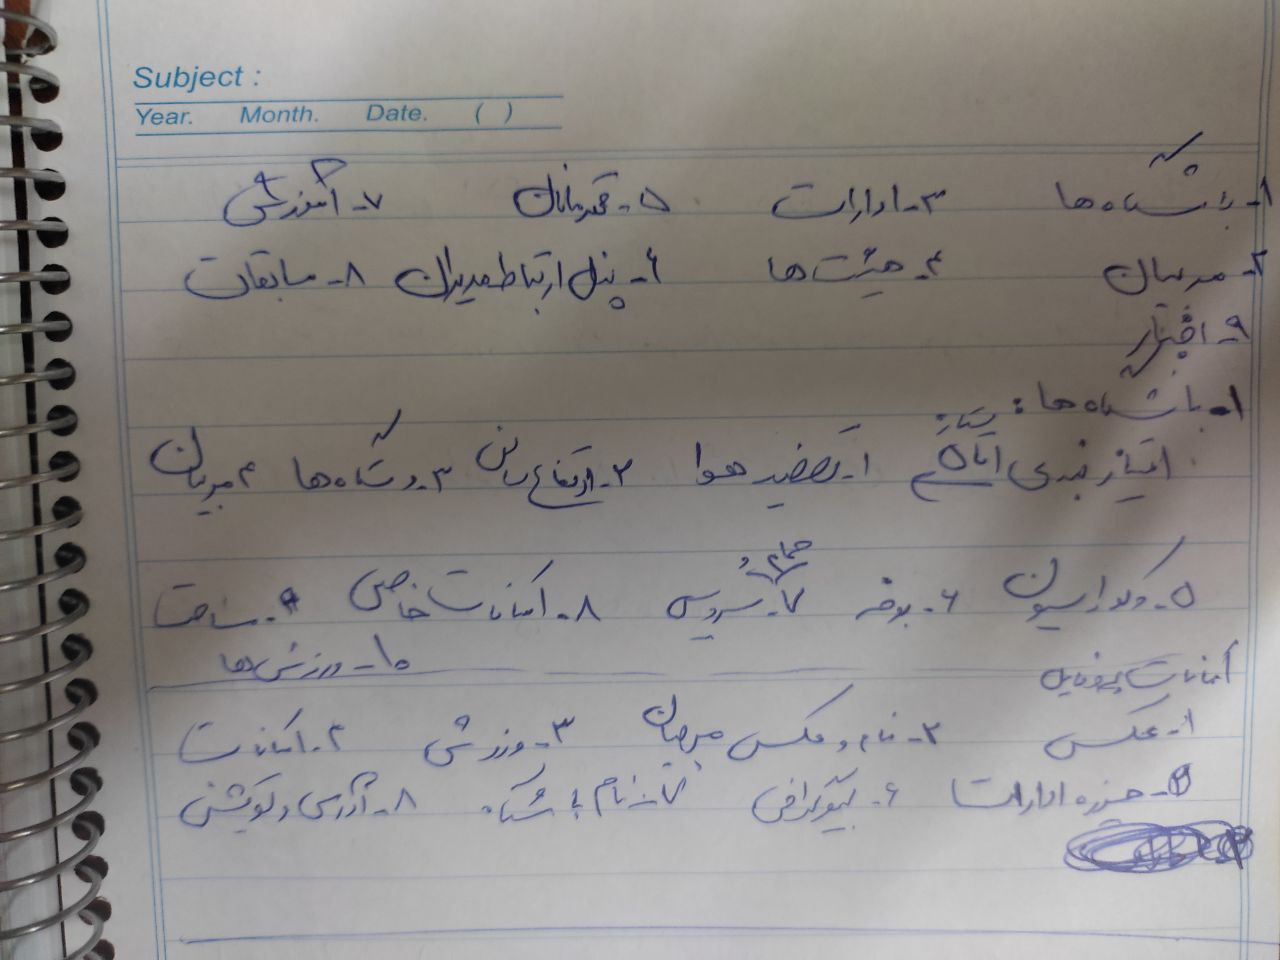 Subject :
Year. Month. Date. ( )
۱- باشگاه ها ۳- ادارات ۵- قهرمانان ۷- آموزشی
۲- مربیان ۴- هیئت ها ۶- پنل ارتباط مدیران ۸- مسابقات
۹- اخبار
۱- باشگاه ها :
ستاره
امتیاز بندی ۱- تصفیه هوا ۲- ارتفاع سالن ۳- دستگاه ها ۴- مربیان
حمام و
۵- دکوراسیون ۶- بوفه ۷- سرویس ۸- امکانات خاص ۹- ساعت
۱۰- ورزش ها
امکانات پروفایل
۱- عکس ۲- نام و عکس مربیان ۳- ورزش ۴- امکانات
۵- حیزه ادارات ۶- بیوگرافی ۷- نام باشگاه ۸- آدرس و لوکیشن